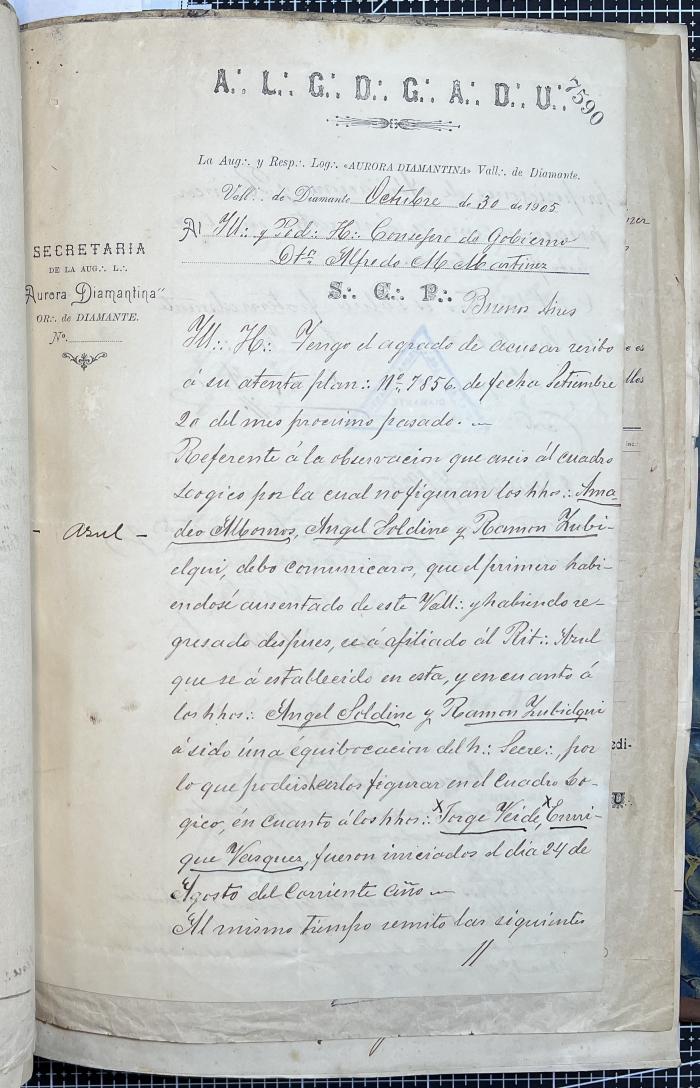 A∴ L∴ G∴ D∴ G∴ A∴ D∴ U∴
7590
La Aug∴ y Resp∴ Log∴ «AURORA DIAMANTINA» Vall∴ de Diamante.
Vall∴ de Diamante Octubre de 30 de 1905
Al Ill∴ y Pod∴ H∴ Consejero de Gobierno
Dtor Alfredo M Martinez
S∴ C∴ P∴ Buenos Aires
SECRETARIA
DE LA AUG∴ L∴
Aurora Diamantina"
OR∴ de DIAMANTE.
No
Ill∴ H∴ Tengo el agrado de acusar recibo
á su atenta plan∴ No 7856 de fecha Setiembre
20 del mes procsimo pasado.
Referente á la observacion que aseis ál cuadro
Logico por la cual no figuran los hhos∴ Ama-
- Azul -
deo Albornos, Angel Soldine y Ramon Zubi-
elqui, debo comunicaros, que el primero habi-
endosé ausentado de este Vall∴ y habiendo re-
gresado despues, se á afiliado ál Rit∴ Azul
que se á establecido en esta, y en cuanto á
los hhos∴ Angel Soldine y Ramon Zubidqui
á sido úna équibocacion del h∴ Secre∴, por
lo que podeis hcerlos figurar en el Cuadro Lo-
gico, én cuanto á los hhos∴ Jorge Veide, Enri-
que Vasquez, fueron iniciados el dia 24 de
Agosto del Corriente Año
Al mismo tiempo remito las siguientes
//